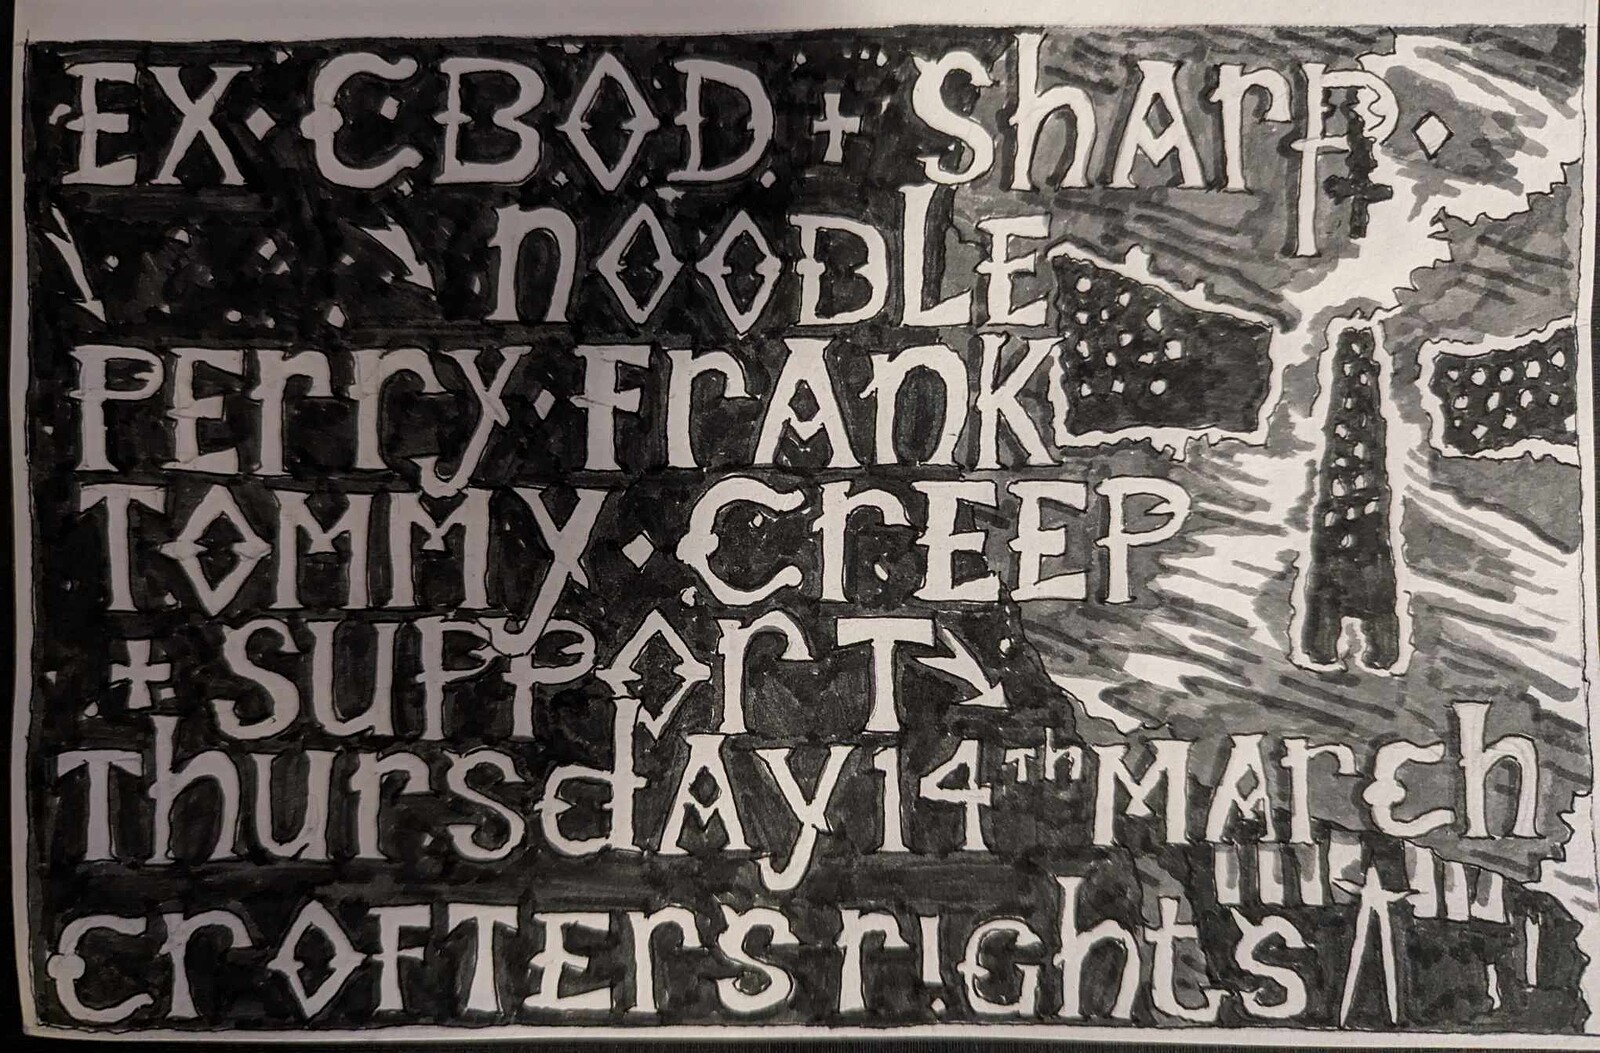 EX·CBOD + ShArp·
nOODLE
PErry·FrAnK
TOMMy·CrEEP
+ SUPPOrT
ThursdAy 14th MArch
CrOFTErS rights